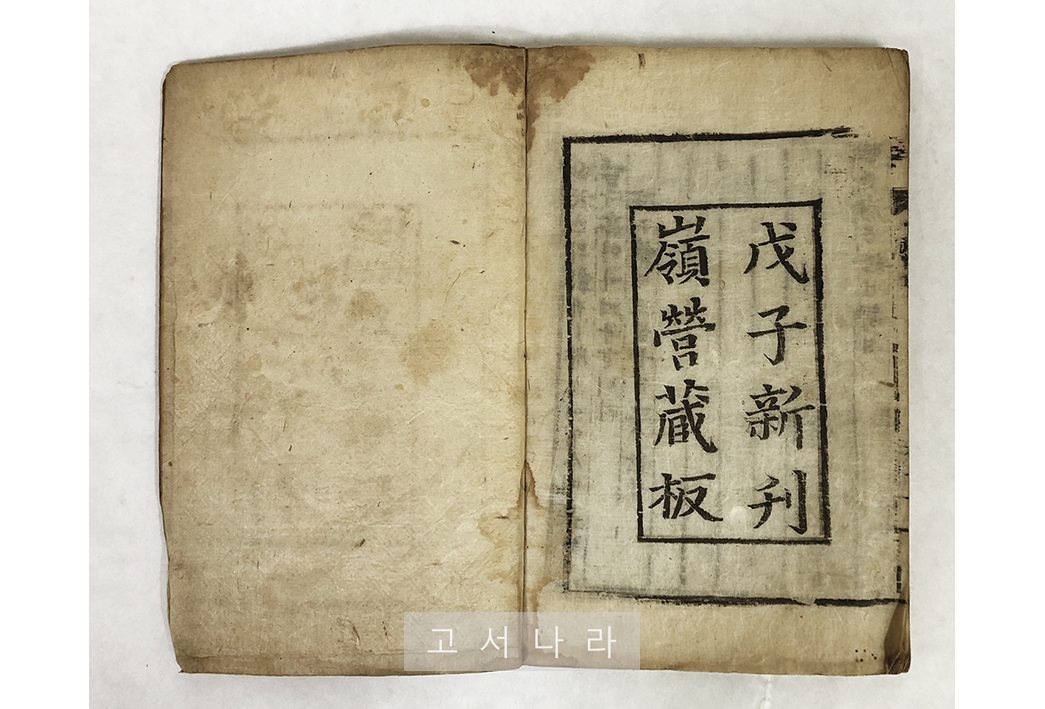 戊子新刊
嶺營蔵板
고서나라